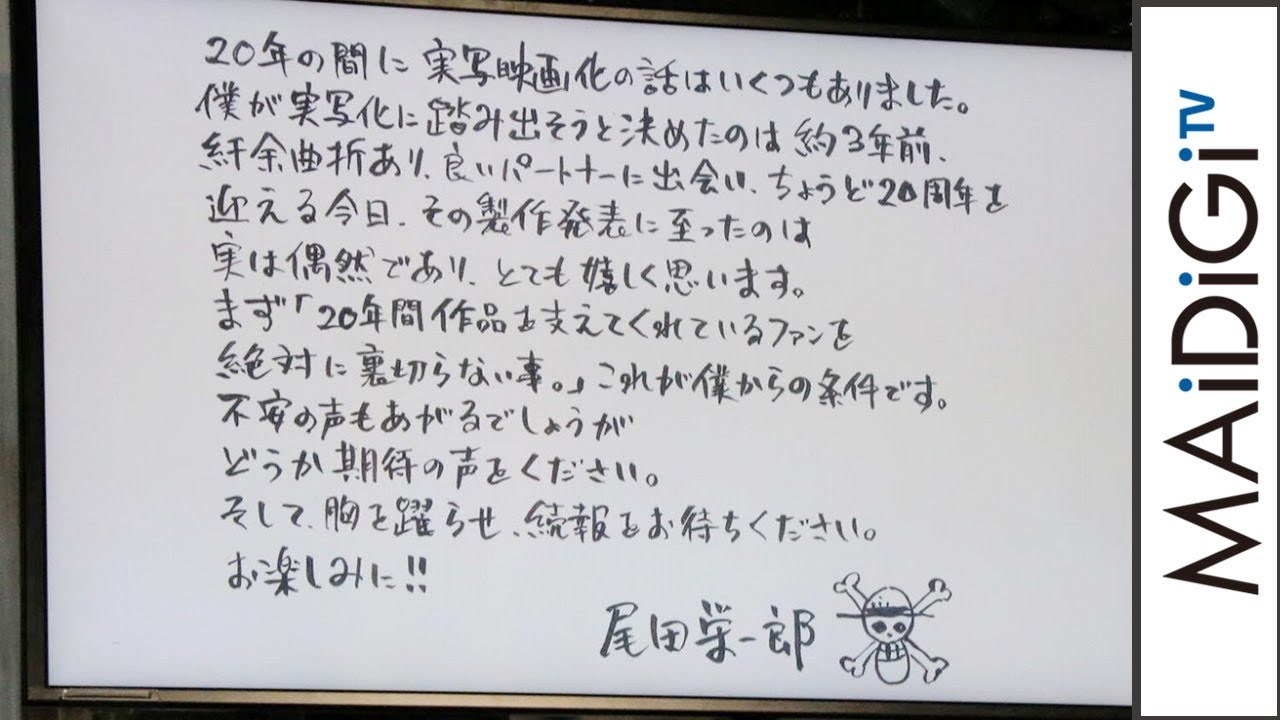 20年の間に実写映画化の話はいくつもありました。
僕が実写化に踏み出そうと決めたのは約3年前、
紆余曲折あり、良いパートナーに出会い、ちょうど20周年を
迎える今日、その製作発表に至ったのは
実は偶然であり、とても嬉しく思います。
まず「20年間作品を支えてくれているファンを
絶対に裏切らない事。」これが僕からの条件です。
不安の声もあがるでしょうが
どうか期待の声をください。
そして、胸を躍らせ、続報をお待ちください。
お楽しみに!!
尾田栄一郎
MAiDiGiTV